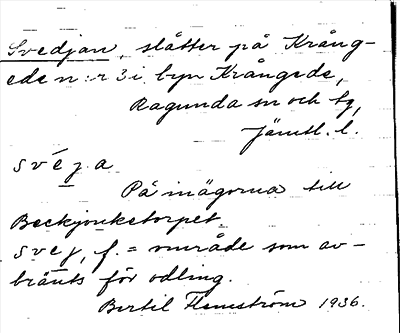 Svedjan, slåtter på Krång-
ede n:r 3 i byn Krångede,
Ragunda sn och tg,
Jämtl. l.
svéja
På inägorna till
torpet.
svej, f. = område som av-
bränts för odling.
Bertil Flemström 1936.